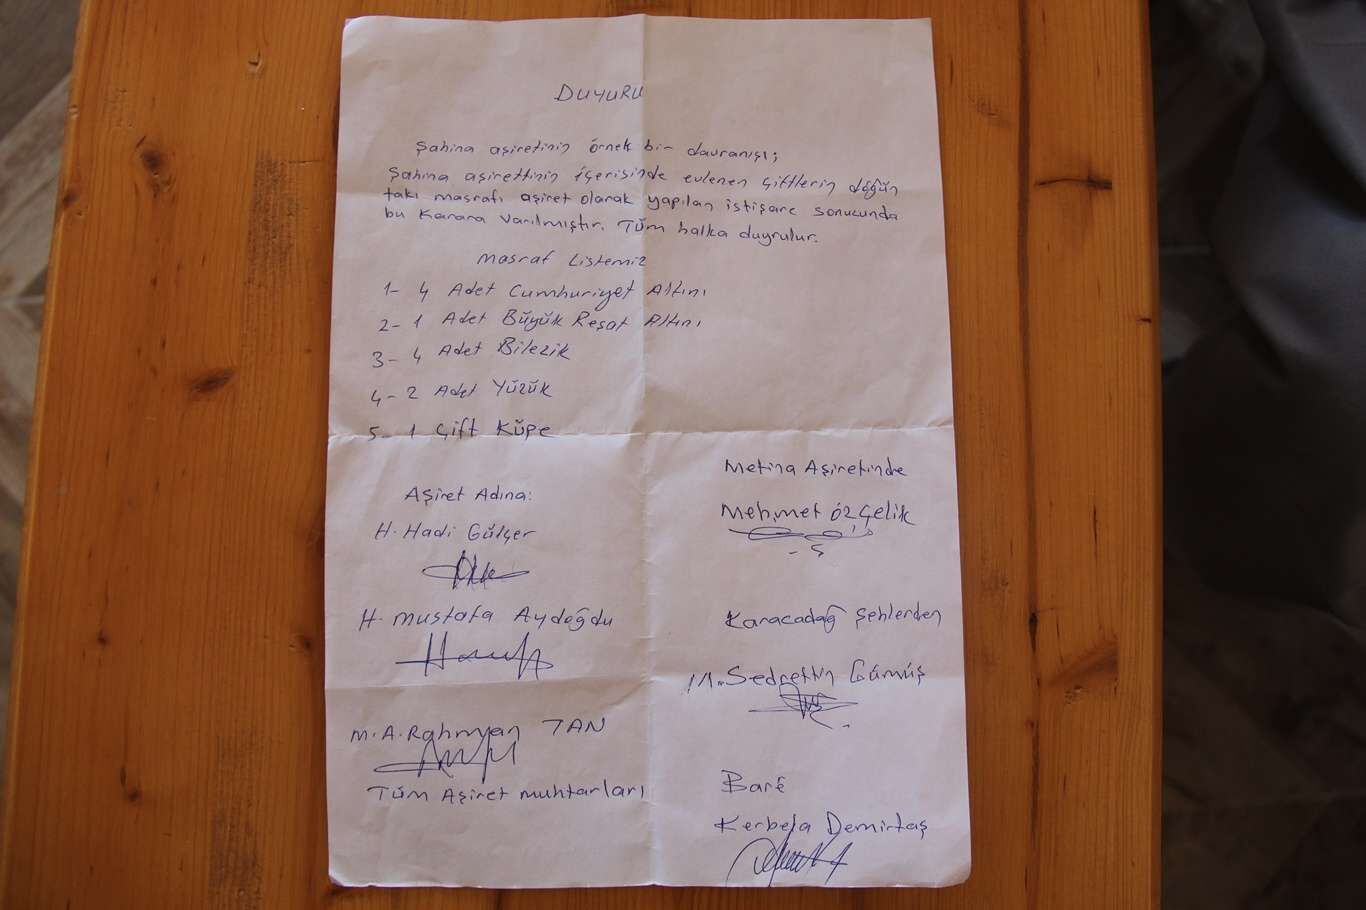 DUYURU
Şahina aşiretinin örnek bir davranışı;
Şahına aşirettinin içerisinde evlenen çiftlerin döğün
takı masrafı aşiret olarak yapılan istişare sonucunda
bu karara varılmıştır. Tüm halka duyrulur.
Masraf Listemiz
1- 4 Adet Cumhuriyet Altını
2- 1 Adet Büyük Reşat Altını
3- 4 Adet Bilezik
4- 2 Adet Yüzük
5- 1 Çift Küpe
Aşiret Adına:
H. Hadi Gülçer
H. Mustafa Aydoğdu
M. A. Rahman TAN
Tüm Aşiret muhtarları
Metina Aşiretinde
Mehmet Özçelik
Karacadağ Şehlerden
M. Sedrettin Gümüş
Barê
Kerbela Demirtaş